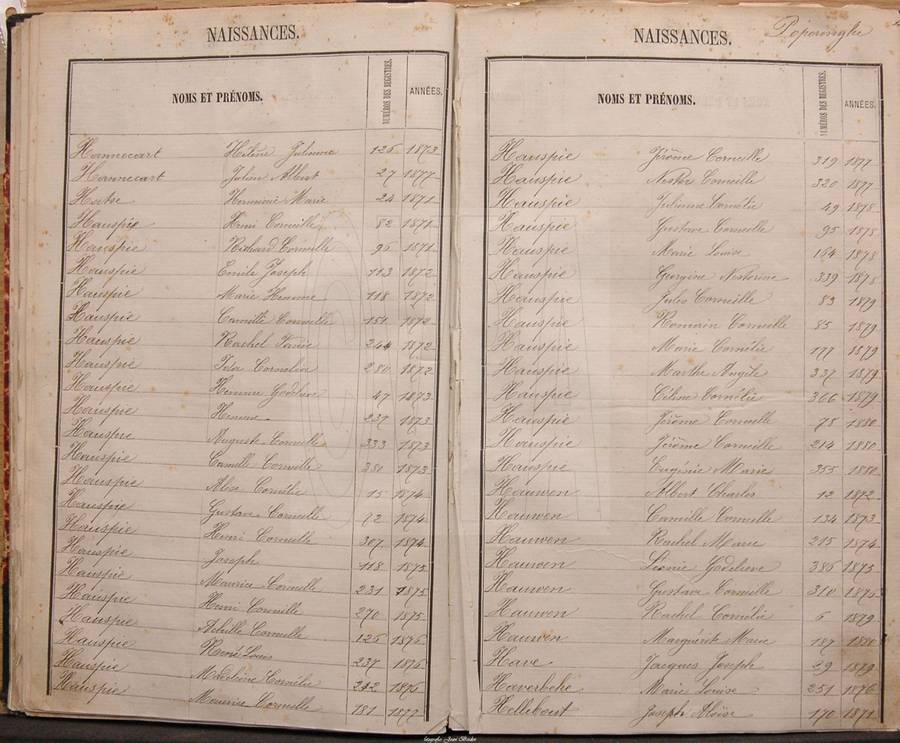 NAISSANCES.
NOMS ET PRÉNOMS. NUMÉROS DES REGISTRES ANNÉES.
Hannecart Hélène Julienne 126 1873
Hannecart Julien Albert 27 1877
Marie 24 1871
Hauspie Henri Corneille 82 1871
Hauspie Richard Corneille 96 1871
Hauspie Emile Joseph 113 1872
Hauspie Marie 118 1872
Hauspie Camille Corneille 151 1872
Hauspie Rachel 244 1872
Hauspie Cornelia 280 1872
Hauspie 47 1873
Hauspie 237 1873
Hauspie Auguste Corneille 333 1873
Hauspie Camille Corneille 380 1873
Hauspie Cornélie 15 1874
Hauspie Gustave Corneille 72 1874
Hauspie Henri Corneille 307 1874
Hauspie Joseph 118 1875
Hauspie Maurice Corneille 231 1875
Hauspie Henri Corneille 270 1875
Hauspie Achille Corneille 126 1876
Hauspie René Louis 237 1876
Hauspie Madeleine Cornélie 242 1876
Hauspie Maurice Corneille 181 1877
NAISSANCES. Poperinghe
NOMS ET PRÉNOMS. NUMÉROS DES REGISTRES ANNÉES.
Hauspie Jérôme Corneille 319 1877
Hauspie Nestor Corneille 320 1877
Hauspie Julienne Cornélie 49 1878
Hauspie Gustave Corneille 95 1878
Hauspie Marie Louise 164 1878
Hauspie Georgine Nestorine 339 1878
Hauspie Jules Corneille 83 1879
Hauspie Romain Corneille 85 1879
Hauspie Marie Cornélie 177 1879
Hauspie Marthe Angèle 337 1879
Hauspie Céline Cornélie 366 1879
Hauspie Jérôme Corneille 78 1880
Hauspie Jérôme Corneille 214 1880
Hauspie Eugénie Marie 355 1880
Hauwen Albert Charles 12 1872
Hauwen Camille Corneille 134 1873
Hauwen Rachel Marie 215 1874
Hauwen Léonie Godelieve 386 1875
Hauwen Gustave Corneille 310 1876
Hauwen Rachel Cornélie 6 1879
Hauwen Marguerite Marie 187 1880
Have Jacques Joseph 29 1879
Haverbeke Marie Louise 251 1876
Hellebout Joseph Aloïse 170 1871